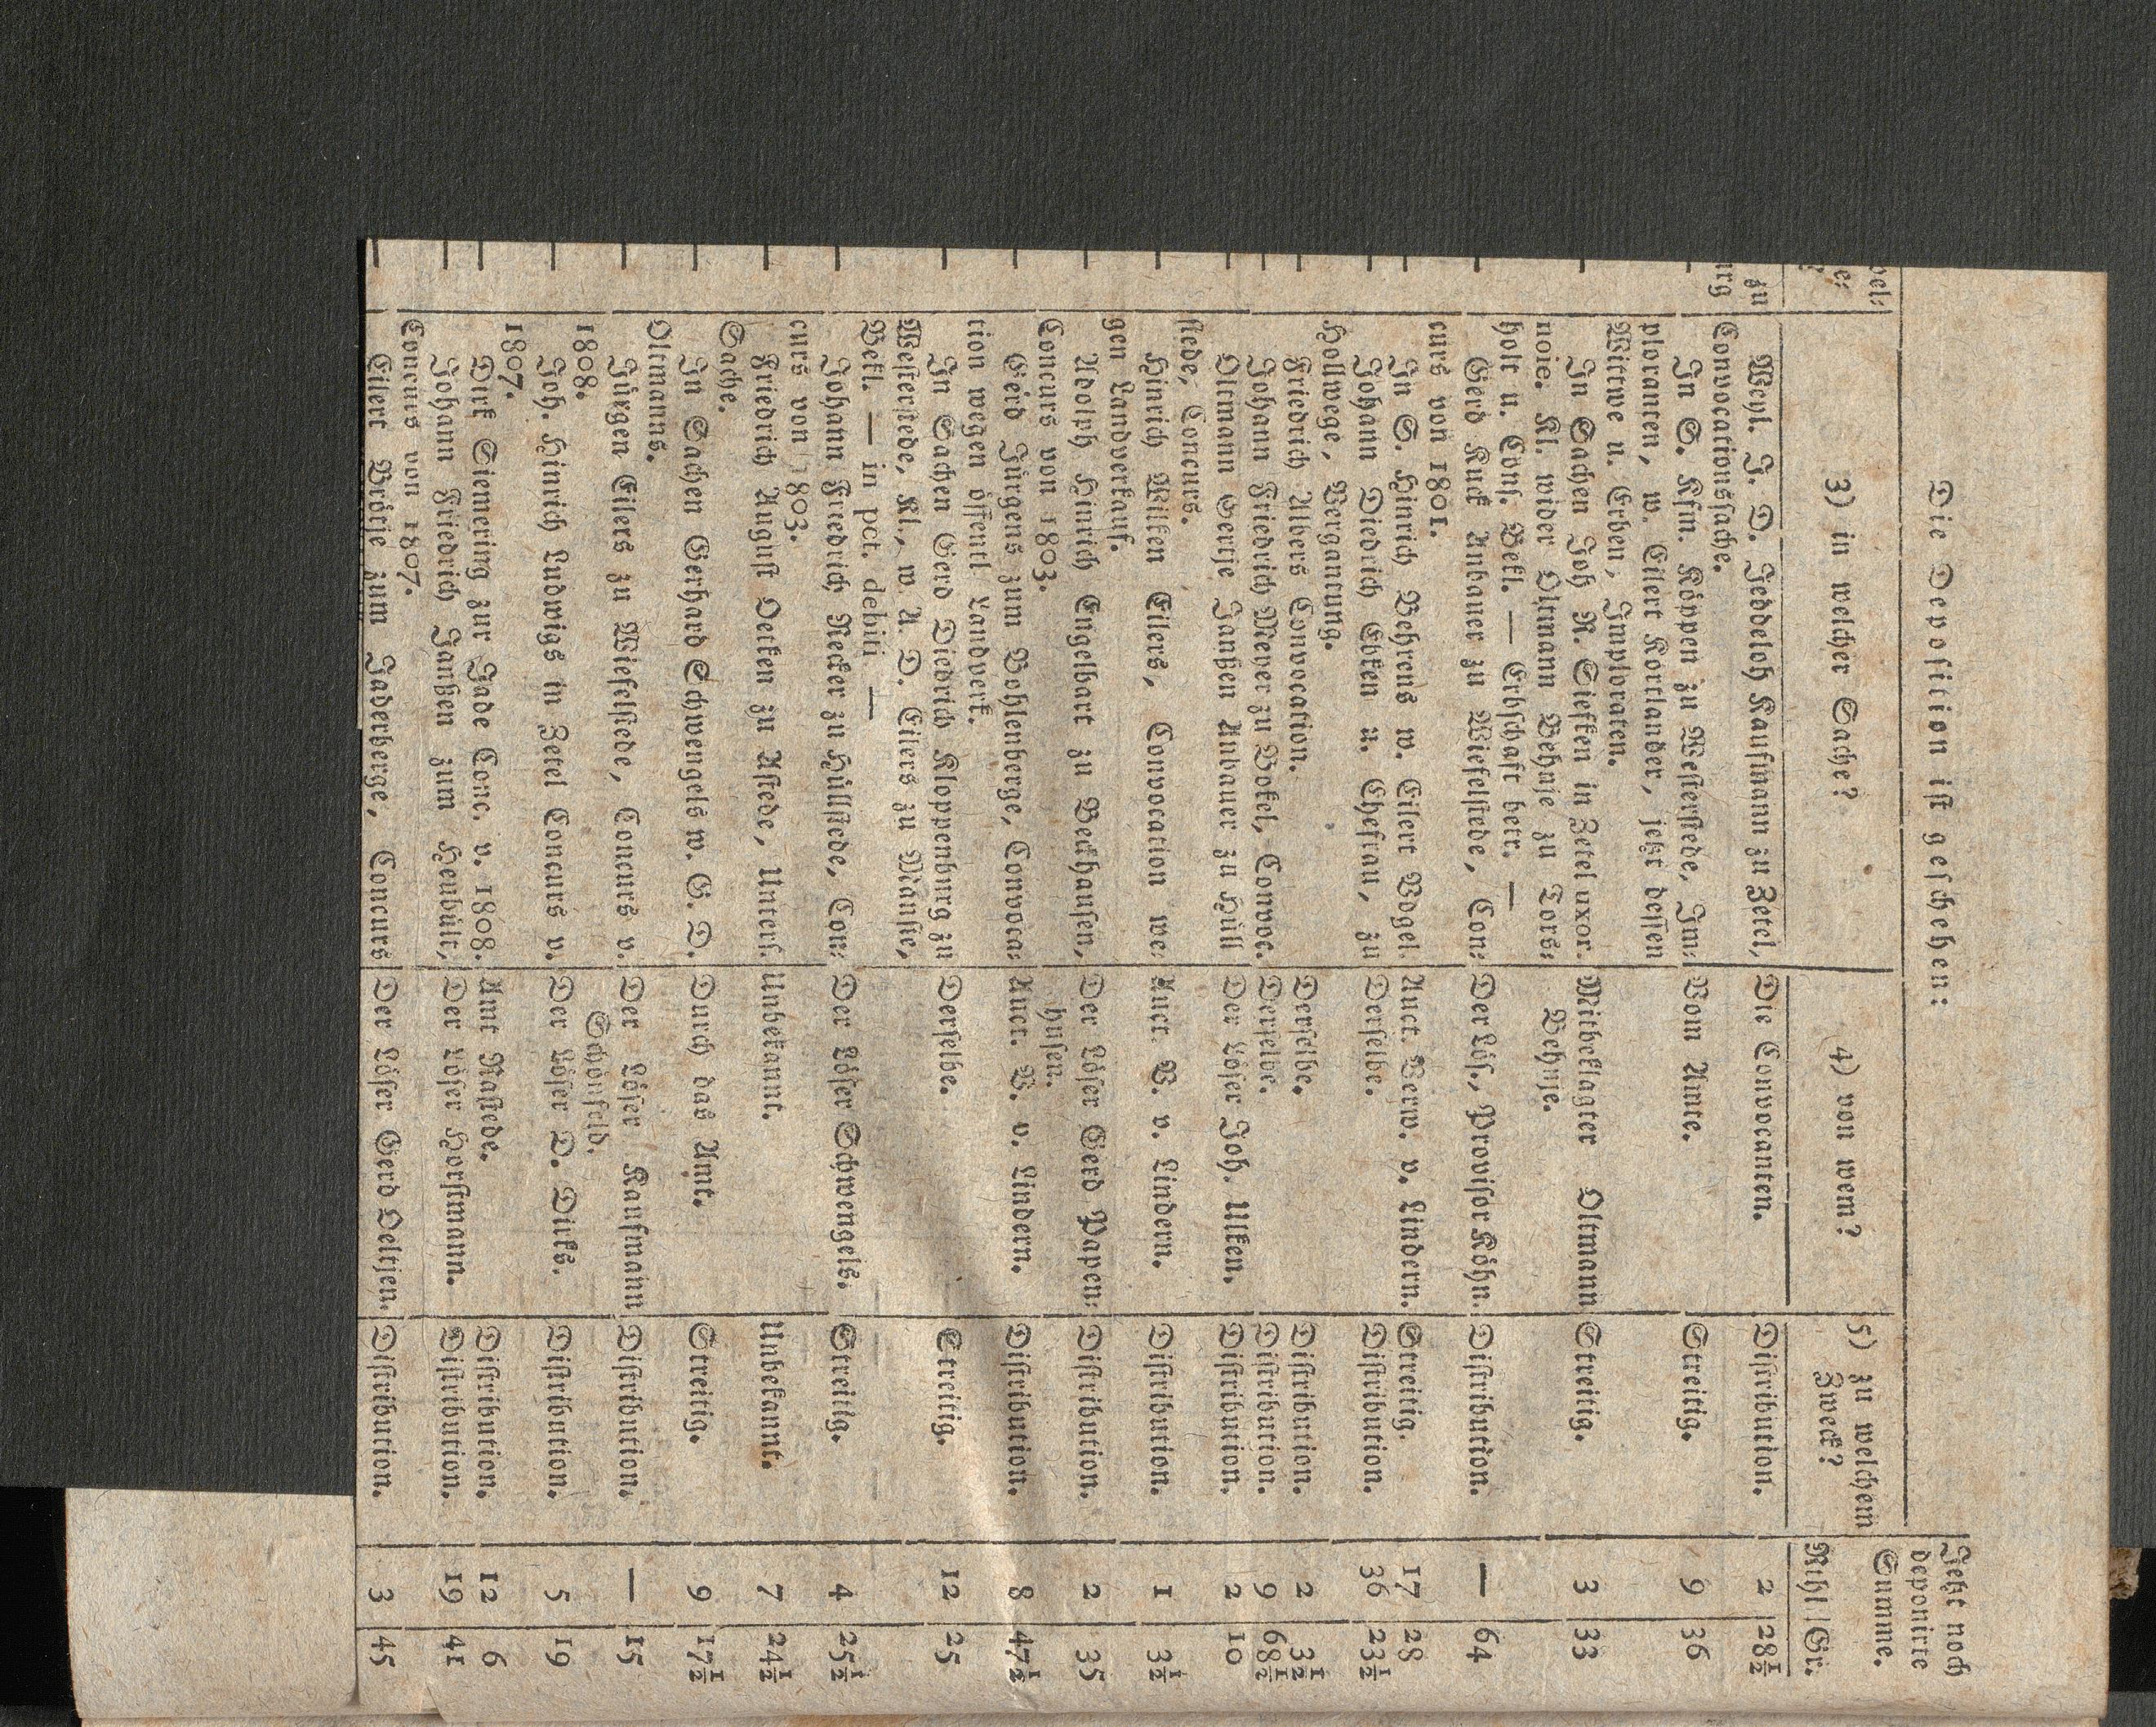 Die Deposition ist geschehen:
Jetzt noch
deponirte
Summe.
3) in welcher Sache?
4) von wem?
5) zu welchem
Zweck?
Rthl Gr.
Weyl. J. D. Jeddeloh Kaufmann zu Zetel, Die Convocanten. Distribution. 2 28½
Convocationssache.
In S. Kfm. Köppen zu Westerstede, Im: Vom Amte. Streitig. 9 36
ploranten, w. Eilert Kortlander, jetzt dessen
Wittwe u. Erben, Imploraten.
In Sachen Joh R. Siefken in Zetel uxor. Mitbeklagter Oltmann Streitig. 3 33
noie. Kl. wider Oltmann Behnje zu Tors: Behnje.
holt u. Cons. Bekl. — Erbschaft betr. —
Gerd Kuck Anbauer zu Wiefelstede, Con: Der Lös., Provisor Köhn. Distribution. — 64
curs von 1801.
In S. Hinrich Behrens w. Eilert Vogel. Auct. Verw. v. Lindern. Streitig. 17 28
Johann Diedrich Cöken u. Ehefrau, zu Derselbe. Distribution. 36 23½
Hollwege, Vergantung.
Friedrich Albers Convocation. Derselbe. Distribution. 2 3½
Johann Friedrich Meyer zu Bokel, Convoc. Derselbe. Distribution. 9 68½
Oltmann Gertje Janßen Anbauer zu Hüll Der Löser Joh. Ulken. Distribution. 2 10
stede, Concurs.
Hinrich Wilken Eilers, Convocation we: Auct. V. v. Lindern. Distribution. 1 3½
gen Landverkauf.
Adolph Hinrich Engelbart zu Beckhausen, Der Löser Gerd Papen: Distribution. 2 35
Concurs von 1803. husen.
Gerd Jürgens zum Bohlenberge, Convoca: Auct. V. v. Lindern. Distribution. 8 47½
tion wegen öffentl Landverk.
In Sachen Gerd Diedrich Kloppenburg zu Derselbe. Streitig. 12 25
Westerstede, Kl., w. A. D. Eilers zu Mansie,
Bekl. — in pct. debiti. —
Johann Friedrich Recker zu Hüllstede, Con: Der Löser Schwengels. Streitig. 4 25½
curs von 1803.
Friedrich August Oetken zu Astede, Unters. Unbekannt. Unbekannt. 7 24½
Sache.
In Sachen Gerhard Schwengels w. G. D. Durch das Amt. Streitig. 9 17½
Oltmanns.
Jürgen Eilers zu Wiefelstede, Concurs v. Der Löser Kaufmann Distribution. — 15
1808. Schönfeld.
Joh. Hinrich Ludwigs in Zetel Concurs v. Der Löser D. Dirks. Distribution. 5 19
1807.
Dirk Siencring zur Jade Conc. v. 1808. Amt Rastede. Distribution. 12 6
Johann Friedrich Janßen zum Heubült, Der Löser Horstmann. Distribution. 19 41
Concurs von 1807.
Eilert Brötje zum Jaderberge, Concurs Der Löser Gerd Oeltjen. Distribution. 3 45